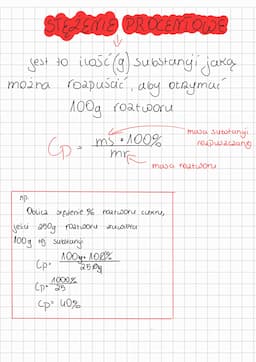 STĘŻENIE PROCENTOWE
jest to ilość (g) substancji jaką
można rozpuścić, aby otrzymać
100g roztworu
Cp = ms · 100%
mr
masa substancji
rozpuszczanej
masa roztworu
np.
Oblicz stężenie % roztworu cukru,
jeśli 250g roztworu zawiera
100g tej substancji
Cp= 100g · 100%
250g
Cp= 1000%
25
Cp= 40%